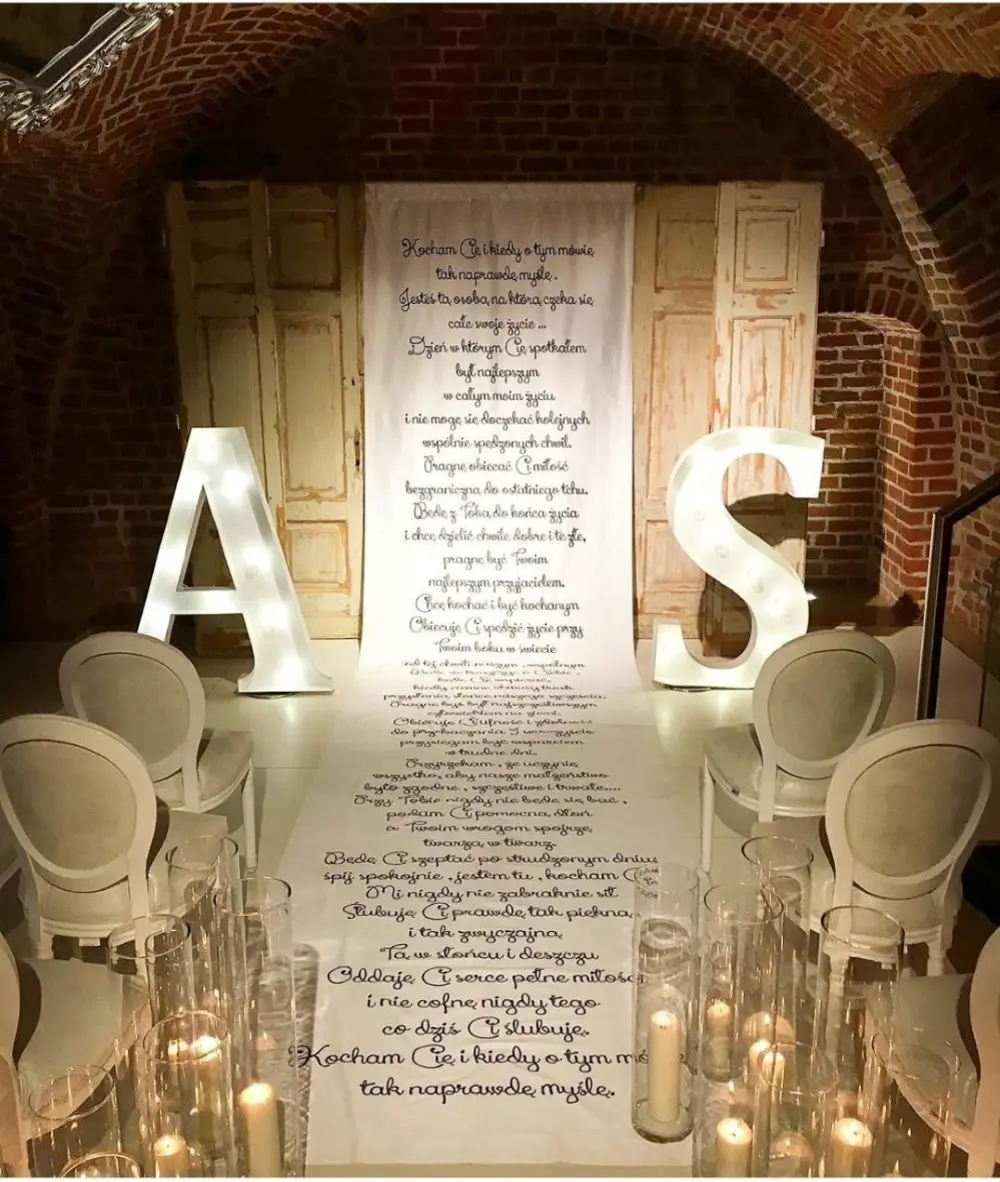 A
S
Kocham Cię i kiedy o tym mówię
tak naprawdę myślę.
Jesteś tą osobą, na którą czeka się
całe swoje życie ...
Dzień w którym Cię spotkałem
był najlepszym
w całym moim życiu
i nie mogę się doczekać kolejnych
wspólnie spędzonych chwil.
Pragnę obiecać Ci miłość
bezgraniczną do ostatniego tchu.
Będę z Tobą do końca życia
i chcę dzielić chwile dobre i te złe,
pragnę być Twoim
najlepszym przyjacielem.
Chcę kochać i być kochanym
Obiecuję Ci spędzić życie przy
Twoim boku w świecie
od tej chwili naszym, wspólnym
kiedy ciemne chmury trosk
przysłonią słońce naszego szczęścia.
Pragnę być był najszczęśliwszym
człowiekiem na ziemi.
Obiecuję Ci ufność i zdolność
do przebaczania I uroczyście
przysięgam być wsparciem
w trudne dni.
Przyrzekam, że uczynię
wszystko, aby nasze małżeństwo
było zgodne, szczęśliwe i trwałe....
Przy Tobie nigdy nie będę się bać,
podam Ci pomocną dłoń
a Twoim wrogom spojrzę
twarzą w twarz.
Będę Ci szeptać po strudzonym dniu
śpij spokojnie, jestem tu, kocham
Mi nigdy nie zabraknie sił
Ślubuję Ci prawdę tak piękną
i tak zwyczajną
Tą w słońcu i deszczu
Oddaję Ci serce pełne miłości
i nie cofnę nigdy tego
co dziś Ci ślubuję.
Kocham Cię i kiedy o tym mówię
tak naprawdę myślę.